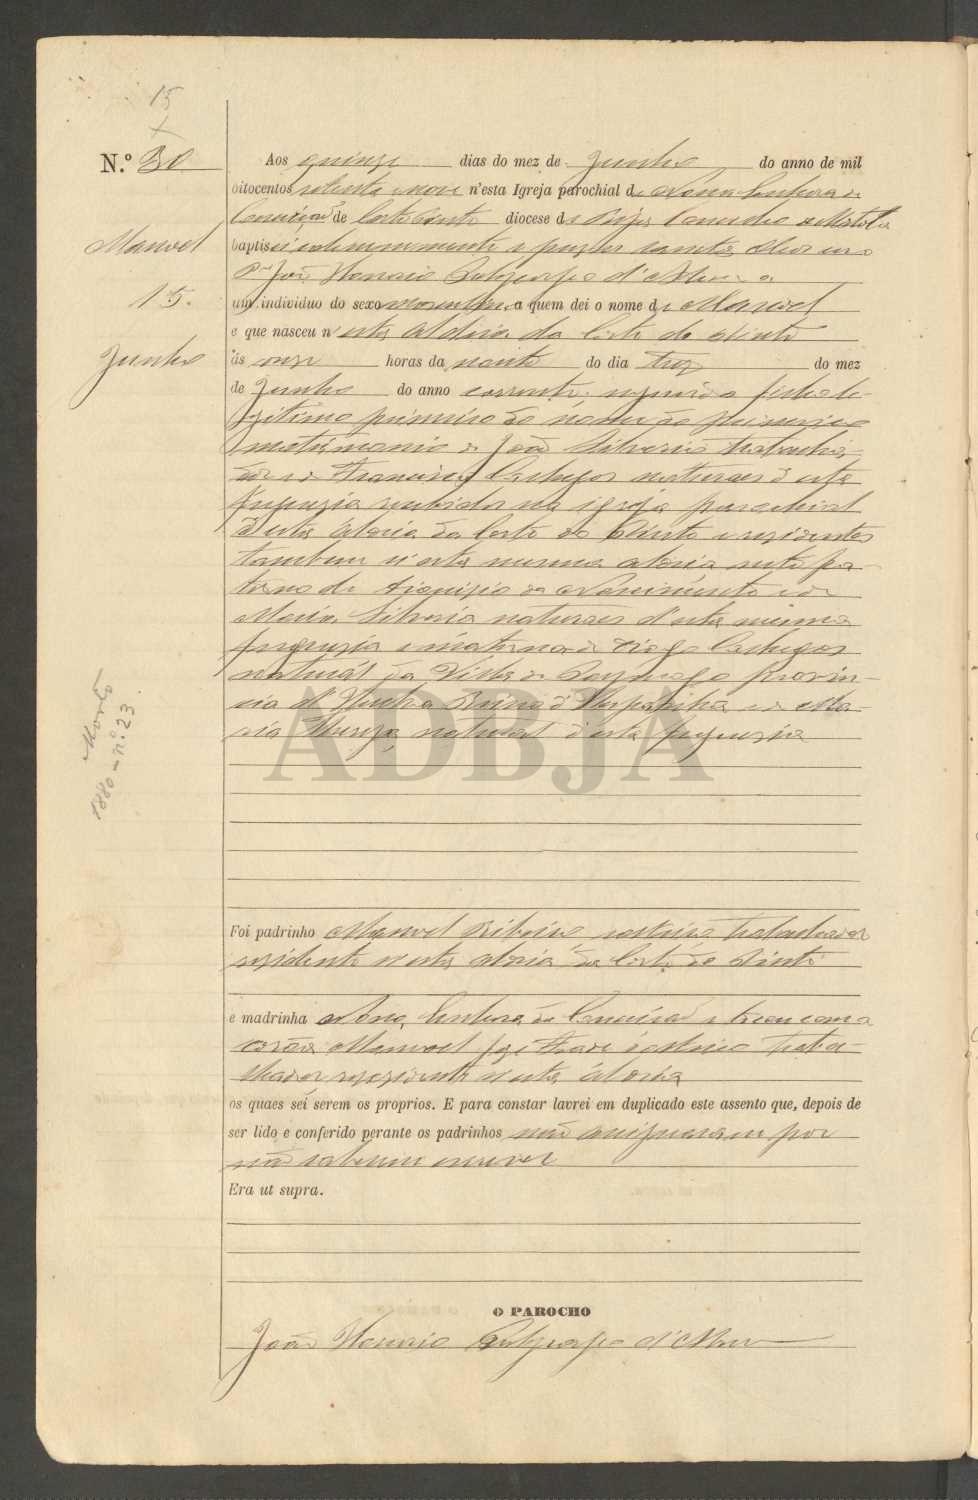 15
N.º 30
Aos quinze dias do mez de Junho do anno de mil
oitocentos setenta e nove n'esta Igreja parochial de Nossa Senhora da
Conceição de Corte do Pinto diocese de Beja Concelho de Mertola
baptisei solemnemente e puz os santos oleos eu o
P.e João Horacio d'
um individuo do sexo masculino a quem dei o nome de Manoel
e que nasceu n'esta aldeia da Corte do Pinto
ás onze horas da noute do dia trez do mez
de Junho do anno corrente filho le-
gitimo primeiro do nome do primeiro
matrimonio de João Silverio trabalha-
dor e de Francisca naturaes d'esta
freguezia recebidos na igreja parochial
d'esta aldeia da Corte do Pinto e residentes
tambem n'esta mesma aldeia neto pa-
terno de Dionizio do Nascimento e de
Maria Silveria naturaes d'esta mesma
freguezia e materno de Diogo
natural da Villa de Provin-
cia d'Huelva Reino d'Hespanha e de Ma-
ria natural d'esta freguezia
Manoel
15.
Junho
Morto
1880 - n.º 23
ADBJA
Foi padrinho Manoel Ribeiro solteiro trabalhador
residente n'esta aldeia da Corte do Pinto
e madrinha Nossa Senhora da Conceição e tocou com a
corôa Manoel José solteiro traba-
lhador residente n'esta aldeia
os quaes sei serem os proprios. E para constar lavrei em duplicado este assento que, depois de
ser lido e conferido perante os padrinhos não assignaram por
não saberem escrever
Era ut supra.
O PAROCHO
João Horacio d'